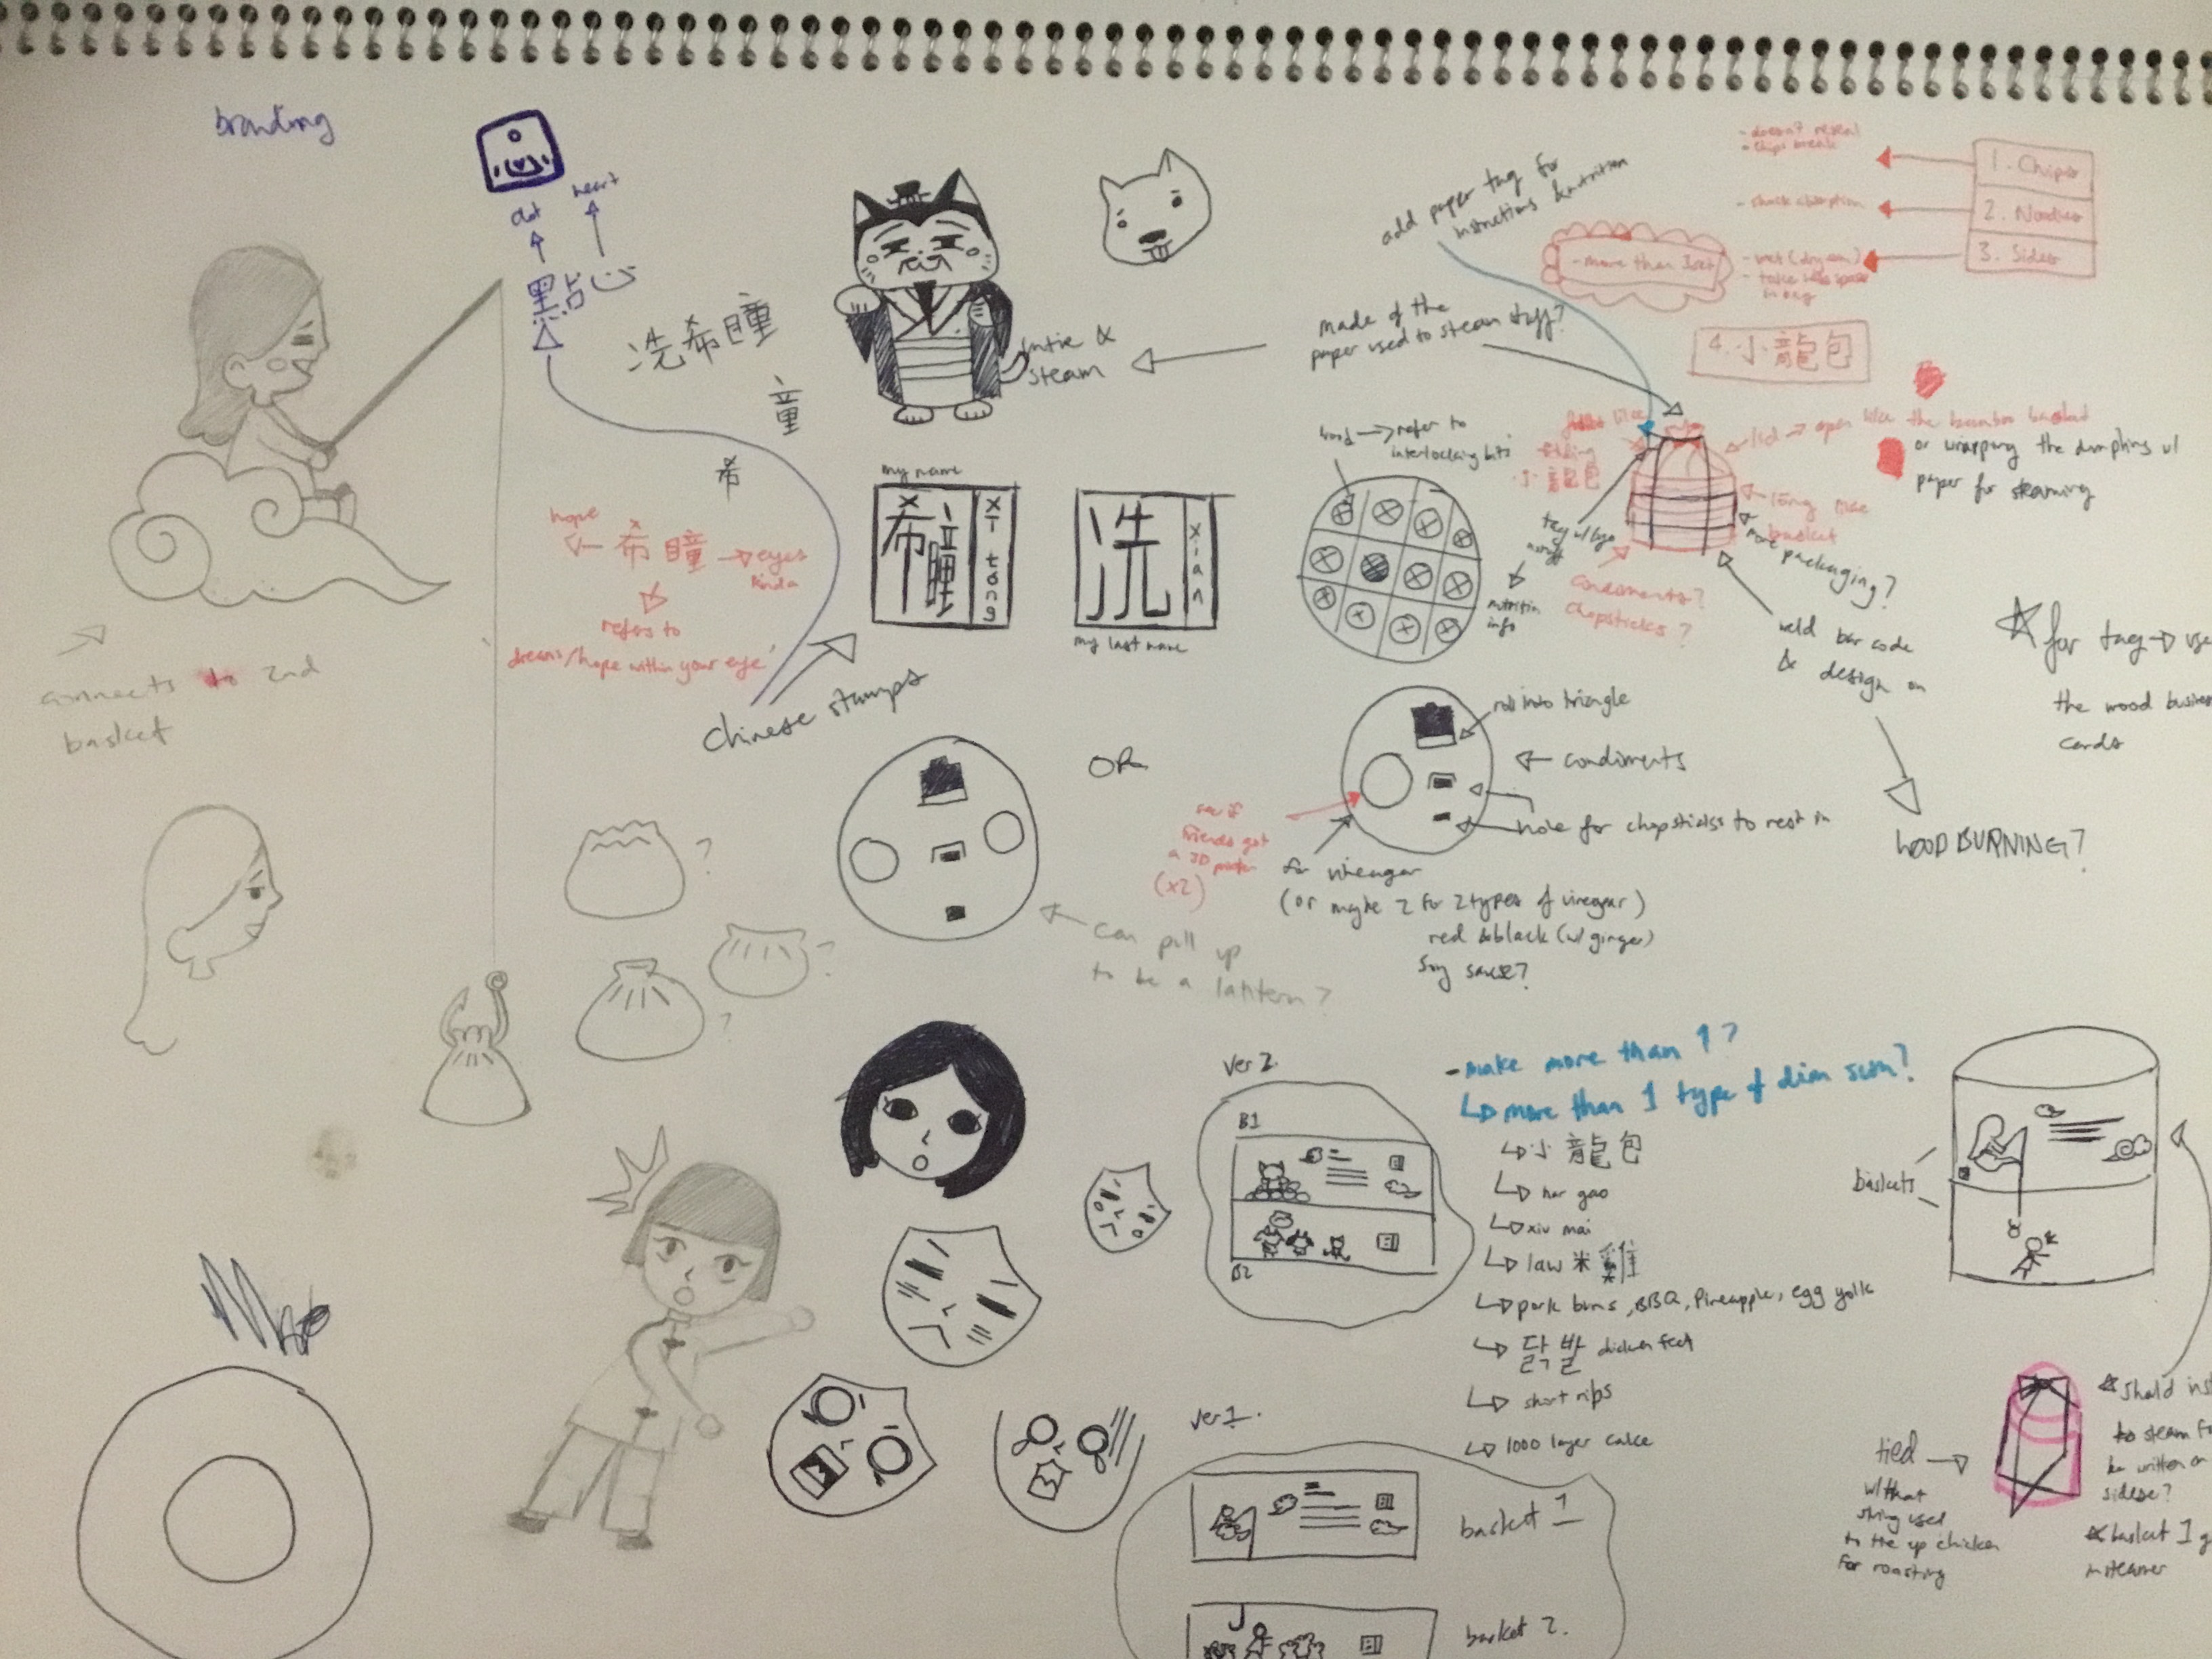 branding
dot
heart
黑占心
冼希瞳
童
希
my name
希瞳
xi tang
冼
xian
my last name
hope
希瞳
eyes
kinda
refers to
dreams/hope within your eye
Chinese stamps
connects to 2nd
basket
steam
add paper tag for
instructions & nutrition
made of the
paper used to steam stuff?
- doesn't reveal
- chips break
1. Chips
- shock absorption
2. Noodles
3. Sides
- more than 1 set
4. 小龍包
refer to
interlocking bits
小龍包
lid → open like the bamboo basket
or wrapping the dumplings w/
paper for steaming
long
basket
more packaging?
nutrition
info
condiments?
chopsticks?
weld bar code
& design on
WOOD BURNING?
for tag → use
the wood business
cards
roll into triangle
condiments
hole for chopsticks to rest in
see if
friends got
a 3D printer
(x2)
for vinegar
(or maybe 2 for 2 types of vinegar)
red & black (w/ ginger)
soy sauce?
OR
can pull up
to be a lantern?
?
?
?
- make more than 1?
↳ more than 1 type of dim sum?
↳ 小龍包
↳ har gao
↳ xiu mai
↳ law 米雞
↳ pork buns, BBQ, Pineapple, egg yolk
↳ 닭발 chicken feet
↳ short ribs
↳ 1000 layer cake
ver 2.
B1
B2
ver 1.
basket 1
basket 2.
baskets
tied
w/ that
string used
to tie up chicken
for roasting
should
to steam
be written on
sides?
basket 1
steamer